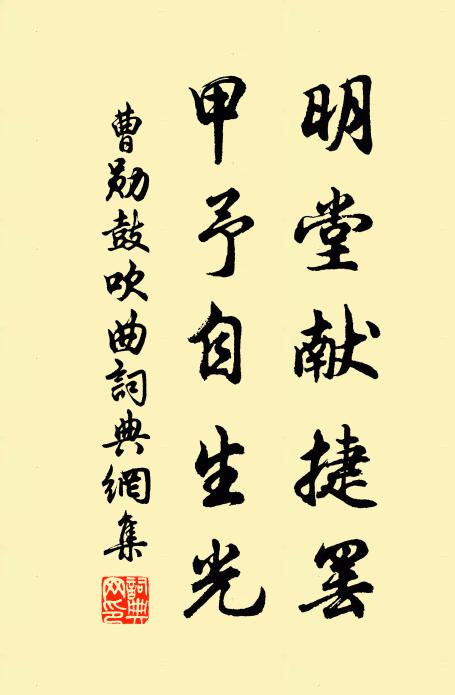 明堂献捷罢
甲予自生光
曹勋鼓吹曲詞典網集
詞典网印